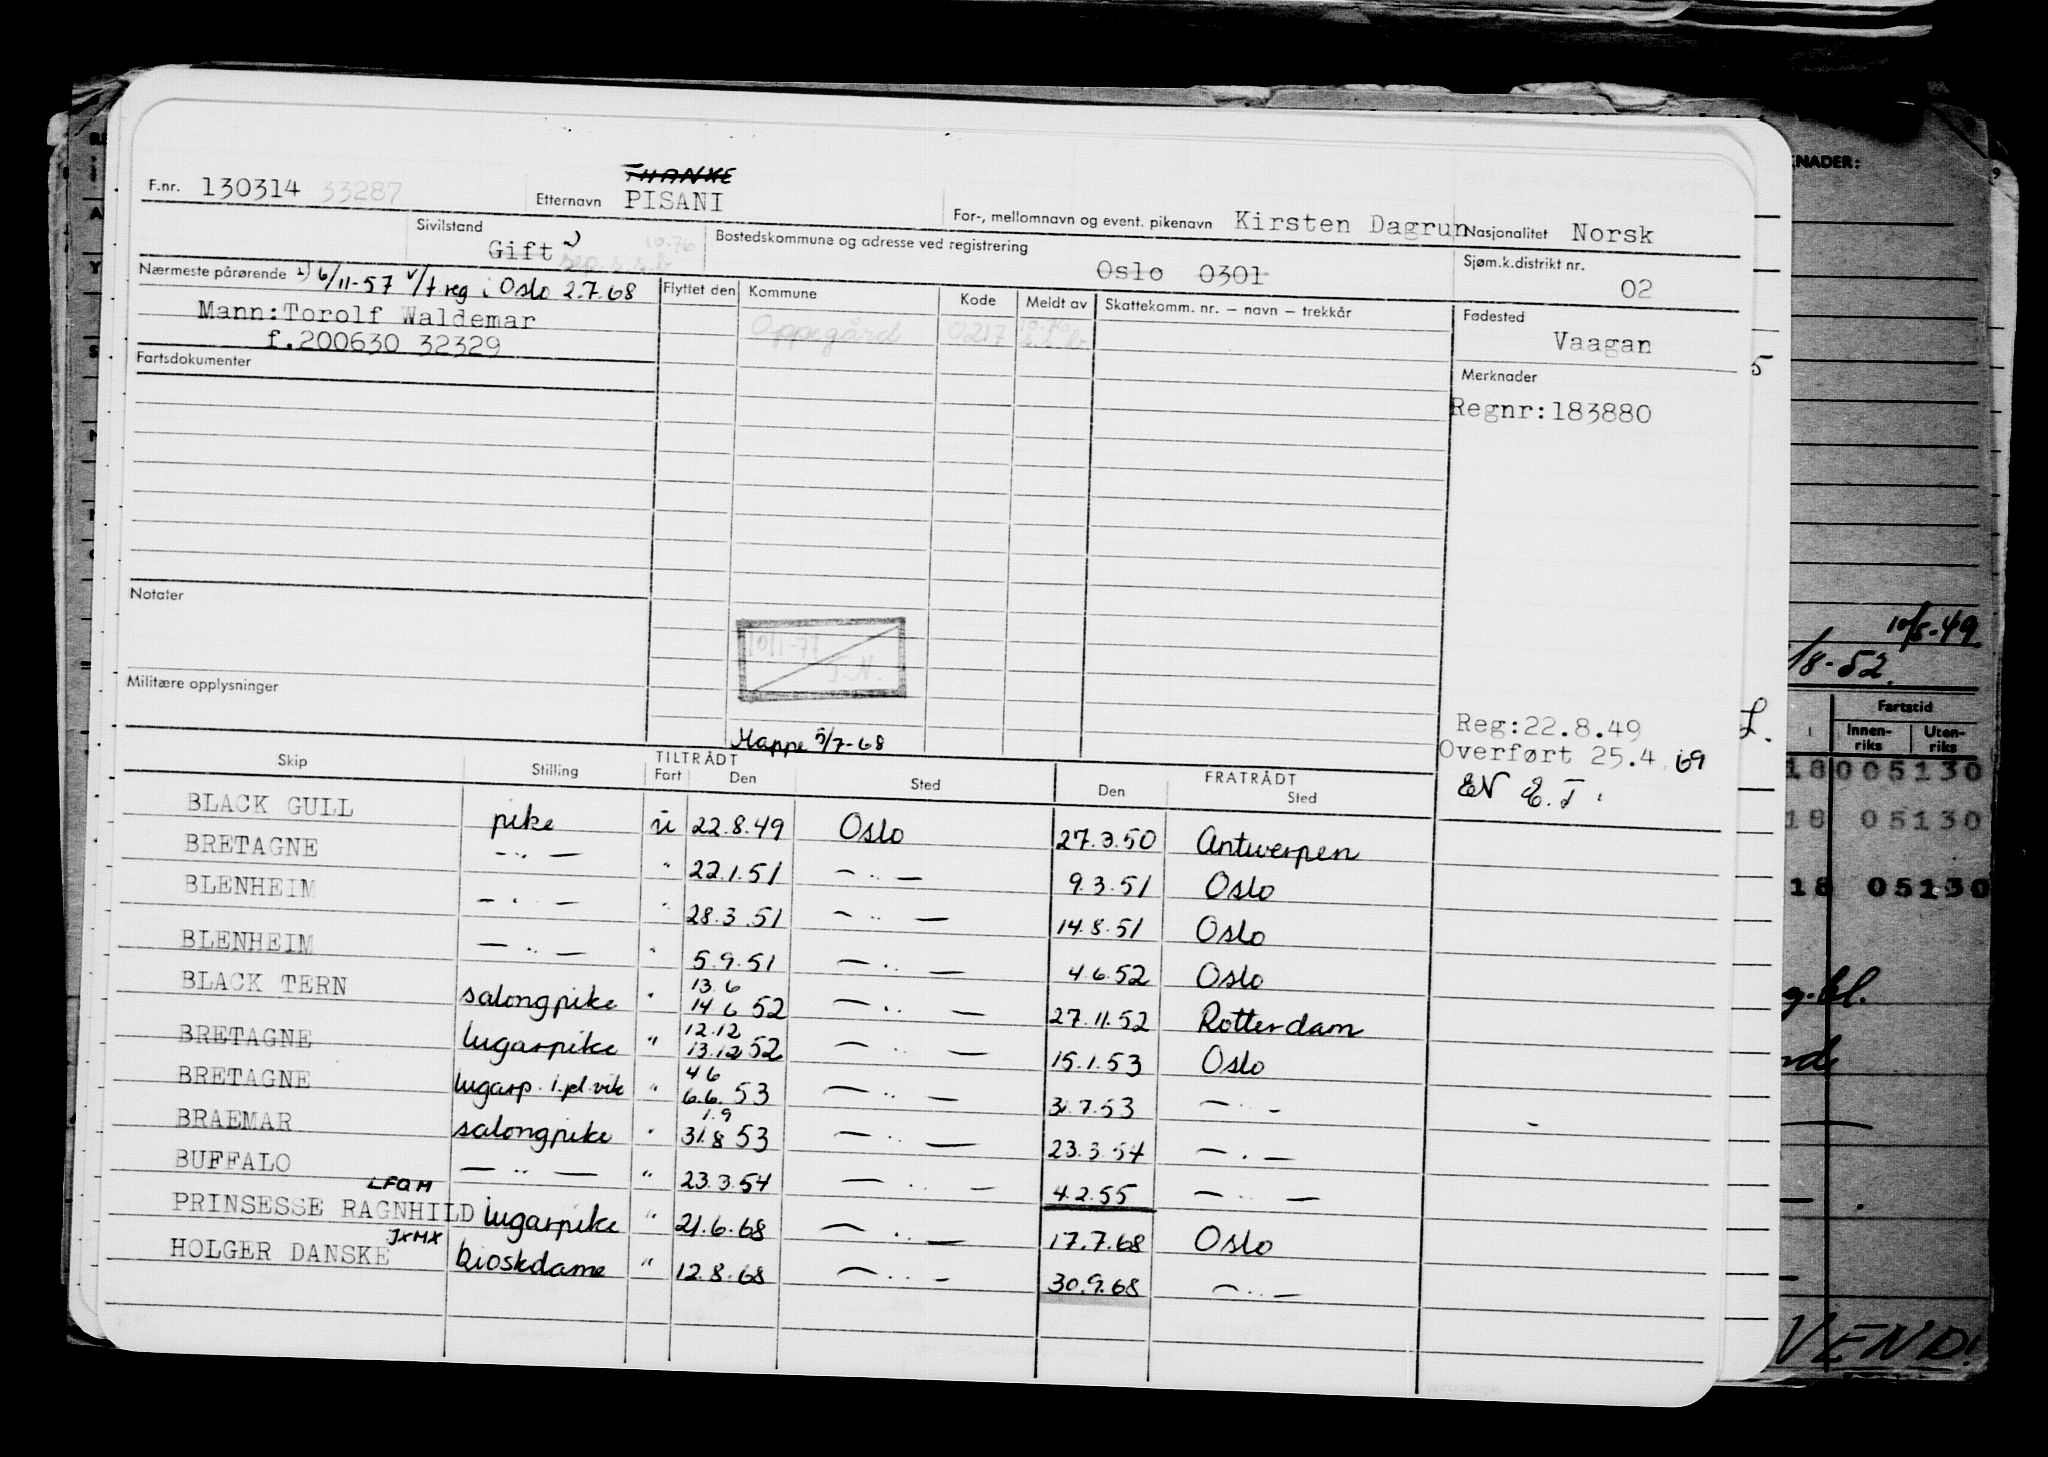 F.nr. 130314 33287 Etternavn THANKE PISANI For-, mellomnavn og event. pikenavn Kirsten Dagrun Nasjonalitet Norsk
Sivilstand Gift Bostedskommune og adresse ved registrering Oslo 0301 Sjøm.k.distrikt nr. 02
Nærmeste pårørende 1) 6/11-57 v/f. reg i Oslo 2.7.68 Flyttet den Kommune Kode Meldt av Skattekomm. nr. – navn – trekkår Fødested
Mann: Torolf Waldemar Oppegård 0217 10.76 Vaagan
f.200630 32329
Fartsdokumenter Merknader
Regnr:183880
Notater
10/1-77
J.N.
Militære opplysninger
Mappe 5/7-68
Reg:22.8.49
Overført 25.4.69
EN E.T.
Skip Stilling TILTRÅDT Fart Den Sted FRATRÅDT Den Sted
BLACK GULL pike u 22.8.49 Oslo 27.3.50 Antwerpen
BRETAGNE — " — " 22.1.51 — " — 9.3.51 Oslo
BLENHEIM — " — " 28.3.51 — " — 14.8.51 Oslo
BLENHEIM — " — " 5.9.51 — " — 4.6.52 Oslo
BLACK TERN salongpike " 13.6 14.6 52 — " — 27.11.52 Rotterdam
BRETAGNE lugarpike " 12.12 13.12 52 — " — 15.1.53 Oslo
BRETAGNE lugarp. i.pl.vik " 4.6 6.6.53 — " — 31.7.53 — " —
BRAEMAR salongpike " 1.9 31.8 53 — " — 23.3.54 — " —
BUFFALO — " — " 23.3.54 — " — 4.2.55 — " —
LFQM
PRINSESSE RAGNHILD lugarpike " 21.6.68 — " — 17.7.68 Oslo
JXMX
HOLGER DANSKE kioskdame " 12.8.68 — " — 30.9.68 — " —
KNADER:
5
10/5-49
/8-52.
L.
Fartstid
Innen-riks Uten-riks
18005130
18 05130
18 05130
g.bl.
VEND!